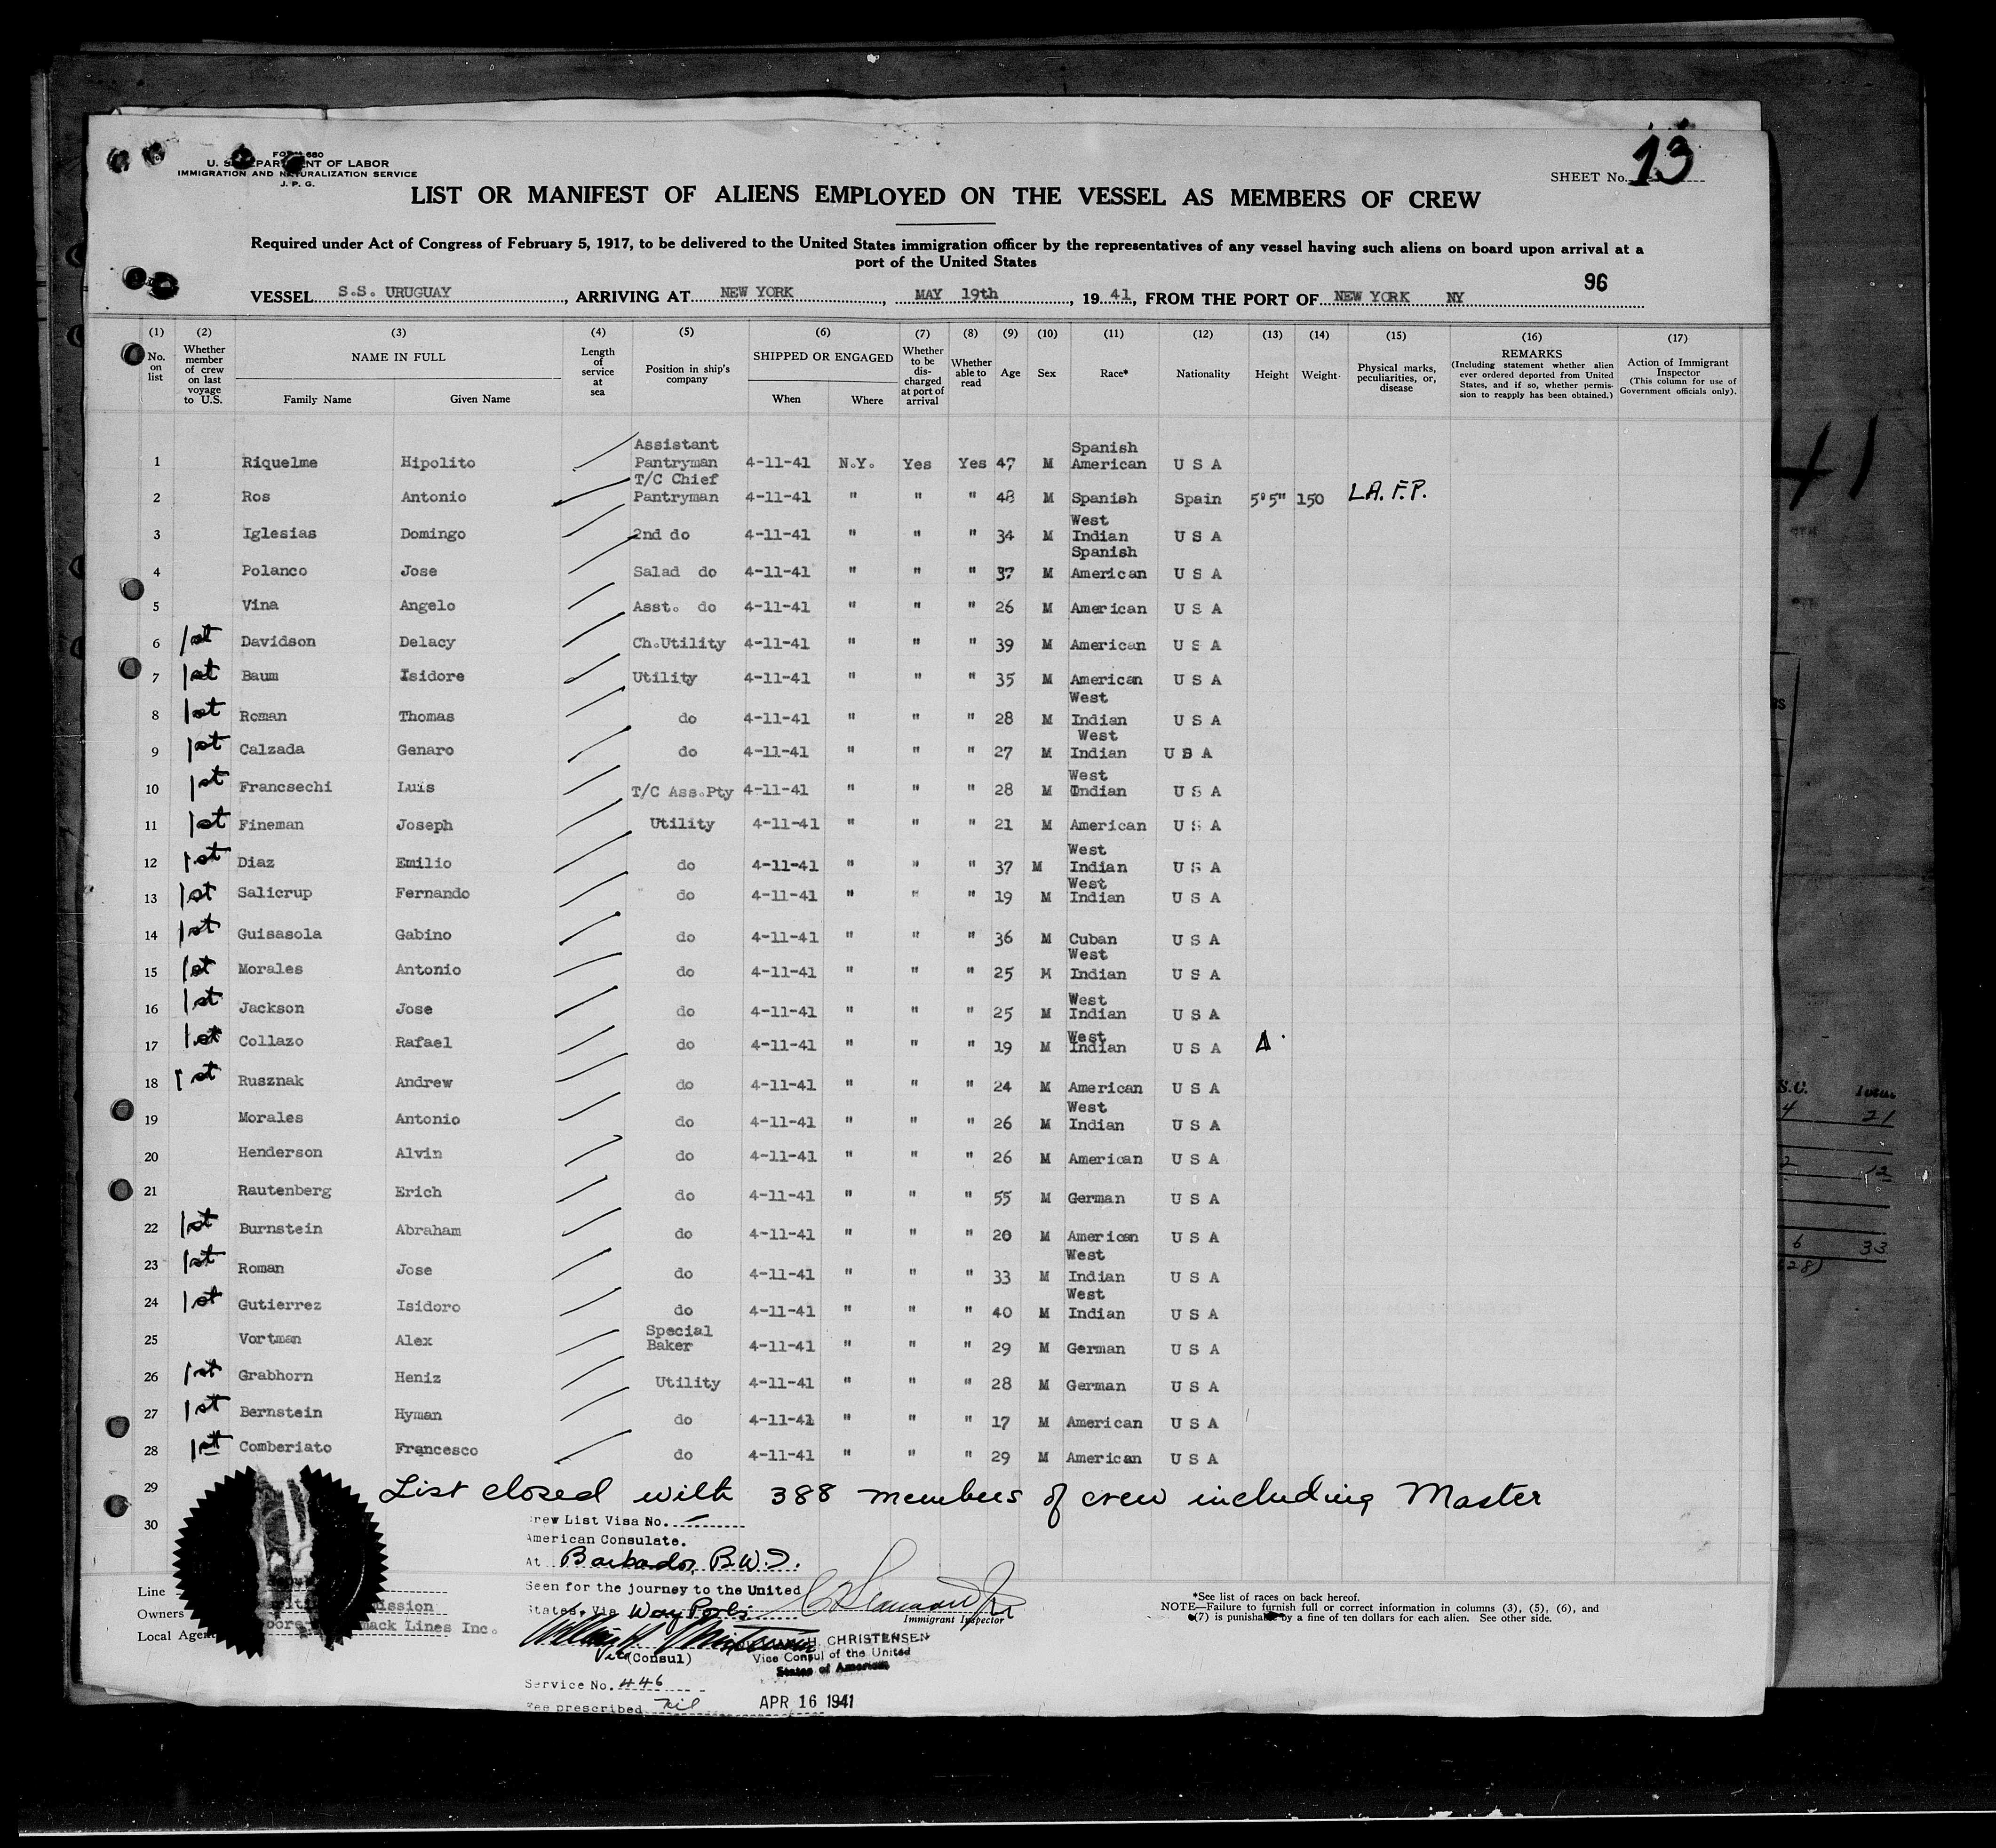 FORM 680
U. S. DEPARTMENT OF LABOR
IMMIGRATION AND NATURALIZATION SERVICE
J. P. G.
SHEET No. 13
LIST OR MANIFEST OF ALIENS EMPLOYED ON THE VESSEL AS MEMBERS OF CREW
Required under Act of Congress of February 5, 1917, to be delivered to the United States immigration officer by the representatives of any vessel having such aliens on board upon arrival at a
port of the United States
96
VESSEL S.S. URUGUAY, ARRIVING AT NEW YORK, MAY 19th, 19 41, FROM THE PORT OF NEW YORK NY
(1) No. on list
(2) Whether member of crew on last voyage to U.S.
(3) NAME IN FULL Family Name Given Name
(4) Length of service at sea
(5) Position in ship's company
(6) SHIPPED OR ENGAGED When Where
(7) Whether to be discharged at port of arrival
(8) Whether able to read
(9) Age
(10) Sex
(11) Race*
(12) Nationality
(13) Height
(14) Weight
(15) Physical marks, peculiarities, or, disease
(16) REMARKS (Including statement whether alien ever ordered deported from United States, and if so, whether permission to reapply has been obtained.)
(17) Action of Immigrant Inspector (This column for use of Government officials only).
1 Riquelme Hipolito Assistant Pantryman 4-11-41 N.Y. Yes Yes 47 M Spanish American U S A
2 Ros Antonio T/C Chief Pantryman 4-11-41 " " " 48 M Spanish Spain 5'5" 150 LA. F.P.
3 Iglesias Domingo 2nd do 4-11-41 " " " 34 M West Indian U S A
4 Polanco Jose Salad do 4-11-41 " " " 37 M Spanish American U S A
5 Vina Angelo Asst. do 4-11-41 " " " 26 M American U S A
6 1st Davidson Delacy Ch.Utility 4-11-41 " " " 39 M American U S A
7 1st Baum Isidore Utility 4-11-41 " " " 35 M American U S A
8 1st Roman Thomas do 4-11-41 " " " 28 M West Indian U S A
9 1st Calzada Genaro do 4-11-41 " " " 27 M West Indian U S A
10 1st Francsechi Luis T/C Ass.Pty 4-11-41 " " " 28 M West Indian U S A
11 1st Fineman Joseph Utility 4-11-41 " " " 21 M American U S A
12 1st Diaz Emilio do 4-11-41 " " " 37 M West Indian U S A
13 1st Salicrup Fernando do 4-11-41 " " " 19 M West Indian U S A
14 1st Guisasola Gabino do 4-11-41 " " " 36 M Cuban U S A
15 1st Morales Antonio do 4-11-41 " " " 25 M West Indian U S A
16 1st Jackson Jose do 4-11-41 " " " 25 M West Indian U S A
17 1st Collazo Rafael do 4-11-41 " " " 19 M West Indian U S A
18 1st Rusznak Andrew do 4-11-41 " " " 24 M American U S A
19 Morales Antonio do 4-11-41 " " " 26 M West Indian U S A
20 Henderson Alvin do 4-11-41 " " " 26 M American U S A
21 Rautenberg Erich do 4-11-41 " " " 55 M German U S A
22 1st Burnstein Abraham do 4-11-41 " " " 20 M American U S A
23 1st Roman Jose do 4-11-41 " " " 33 M West Indian U S A
24 1st Gutierrez Isidoro do 4-11-41 " " " 40 M West Indian U S A
25 Vortman Alex Special Baker 4-11-41 " " " 29 M German U S A
26 1st Grabhorn Heniz Utility 4-11-41 " " " 28 M German U S A
27 1st Bernstein Hyman do 4-11-41 " " " 17 M American U S A
28 1st Comberiato Francesco do 4-11-41 " " " 29 M American U S A
29 List closed with 388 members of crew including Master
30
Crew List Visa No.
American Consulate.
At Barbados, B.W.I.
Seen for the journey to the United
States, Via Way Ports
Immigrant Inspector
H. CHRISTENSEN
Vice Consul of the United
States of America
Vice (Consul)
Service No. 446
Fee prescribed Nil
APR 16 1941
Line
Owners ission
Local Agen oore mack Lines Inc.
*See list of races on back hereof.
NOTE—Failure to furnish full or correct information in columns (3), (5), (6), and
(7) is punishable by a fine of ten dollars for each alien. See other side.
41
S.U. Total
4 21
2 12
6 33